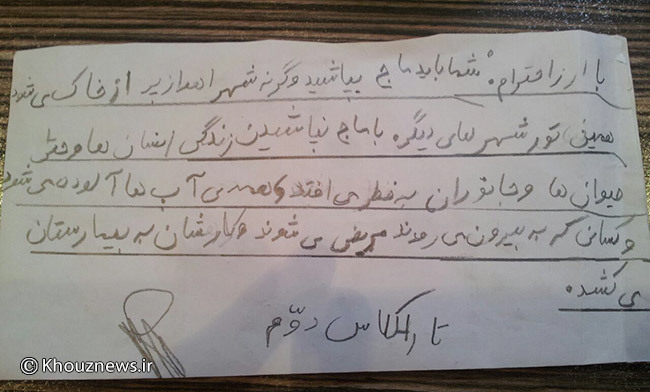 با ارز احترام: شما باید ماچ بپاشید وگرنه شهر اهواز پر از خاک می شود
همینی تور شهر های دیگر. با ماچ نپاشیدن زندگی انسان ها و حتی
حیوان ها و جانوران به خطر می افتد و همه ی آب ها آلوده می شود
و کسانی که به بیرون می روند مریض می شوند و کارشان به بیمارستان
می کشد.
تارا کلاس دوّم
© Khouznews.ir